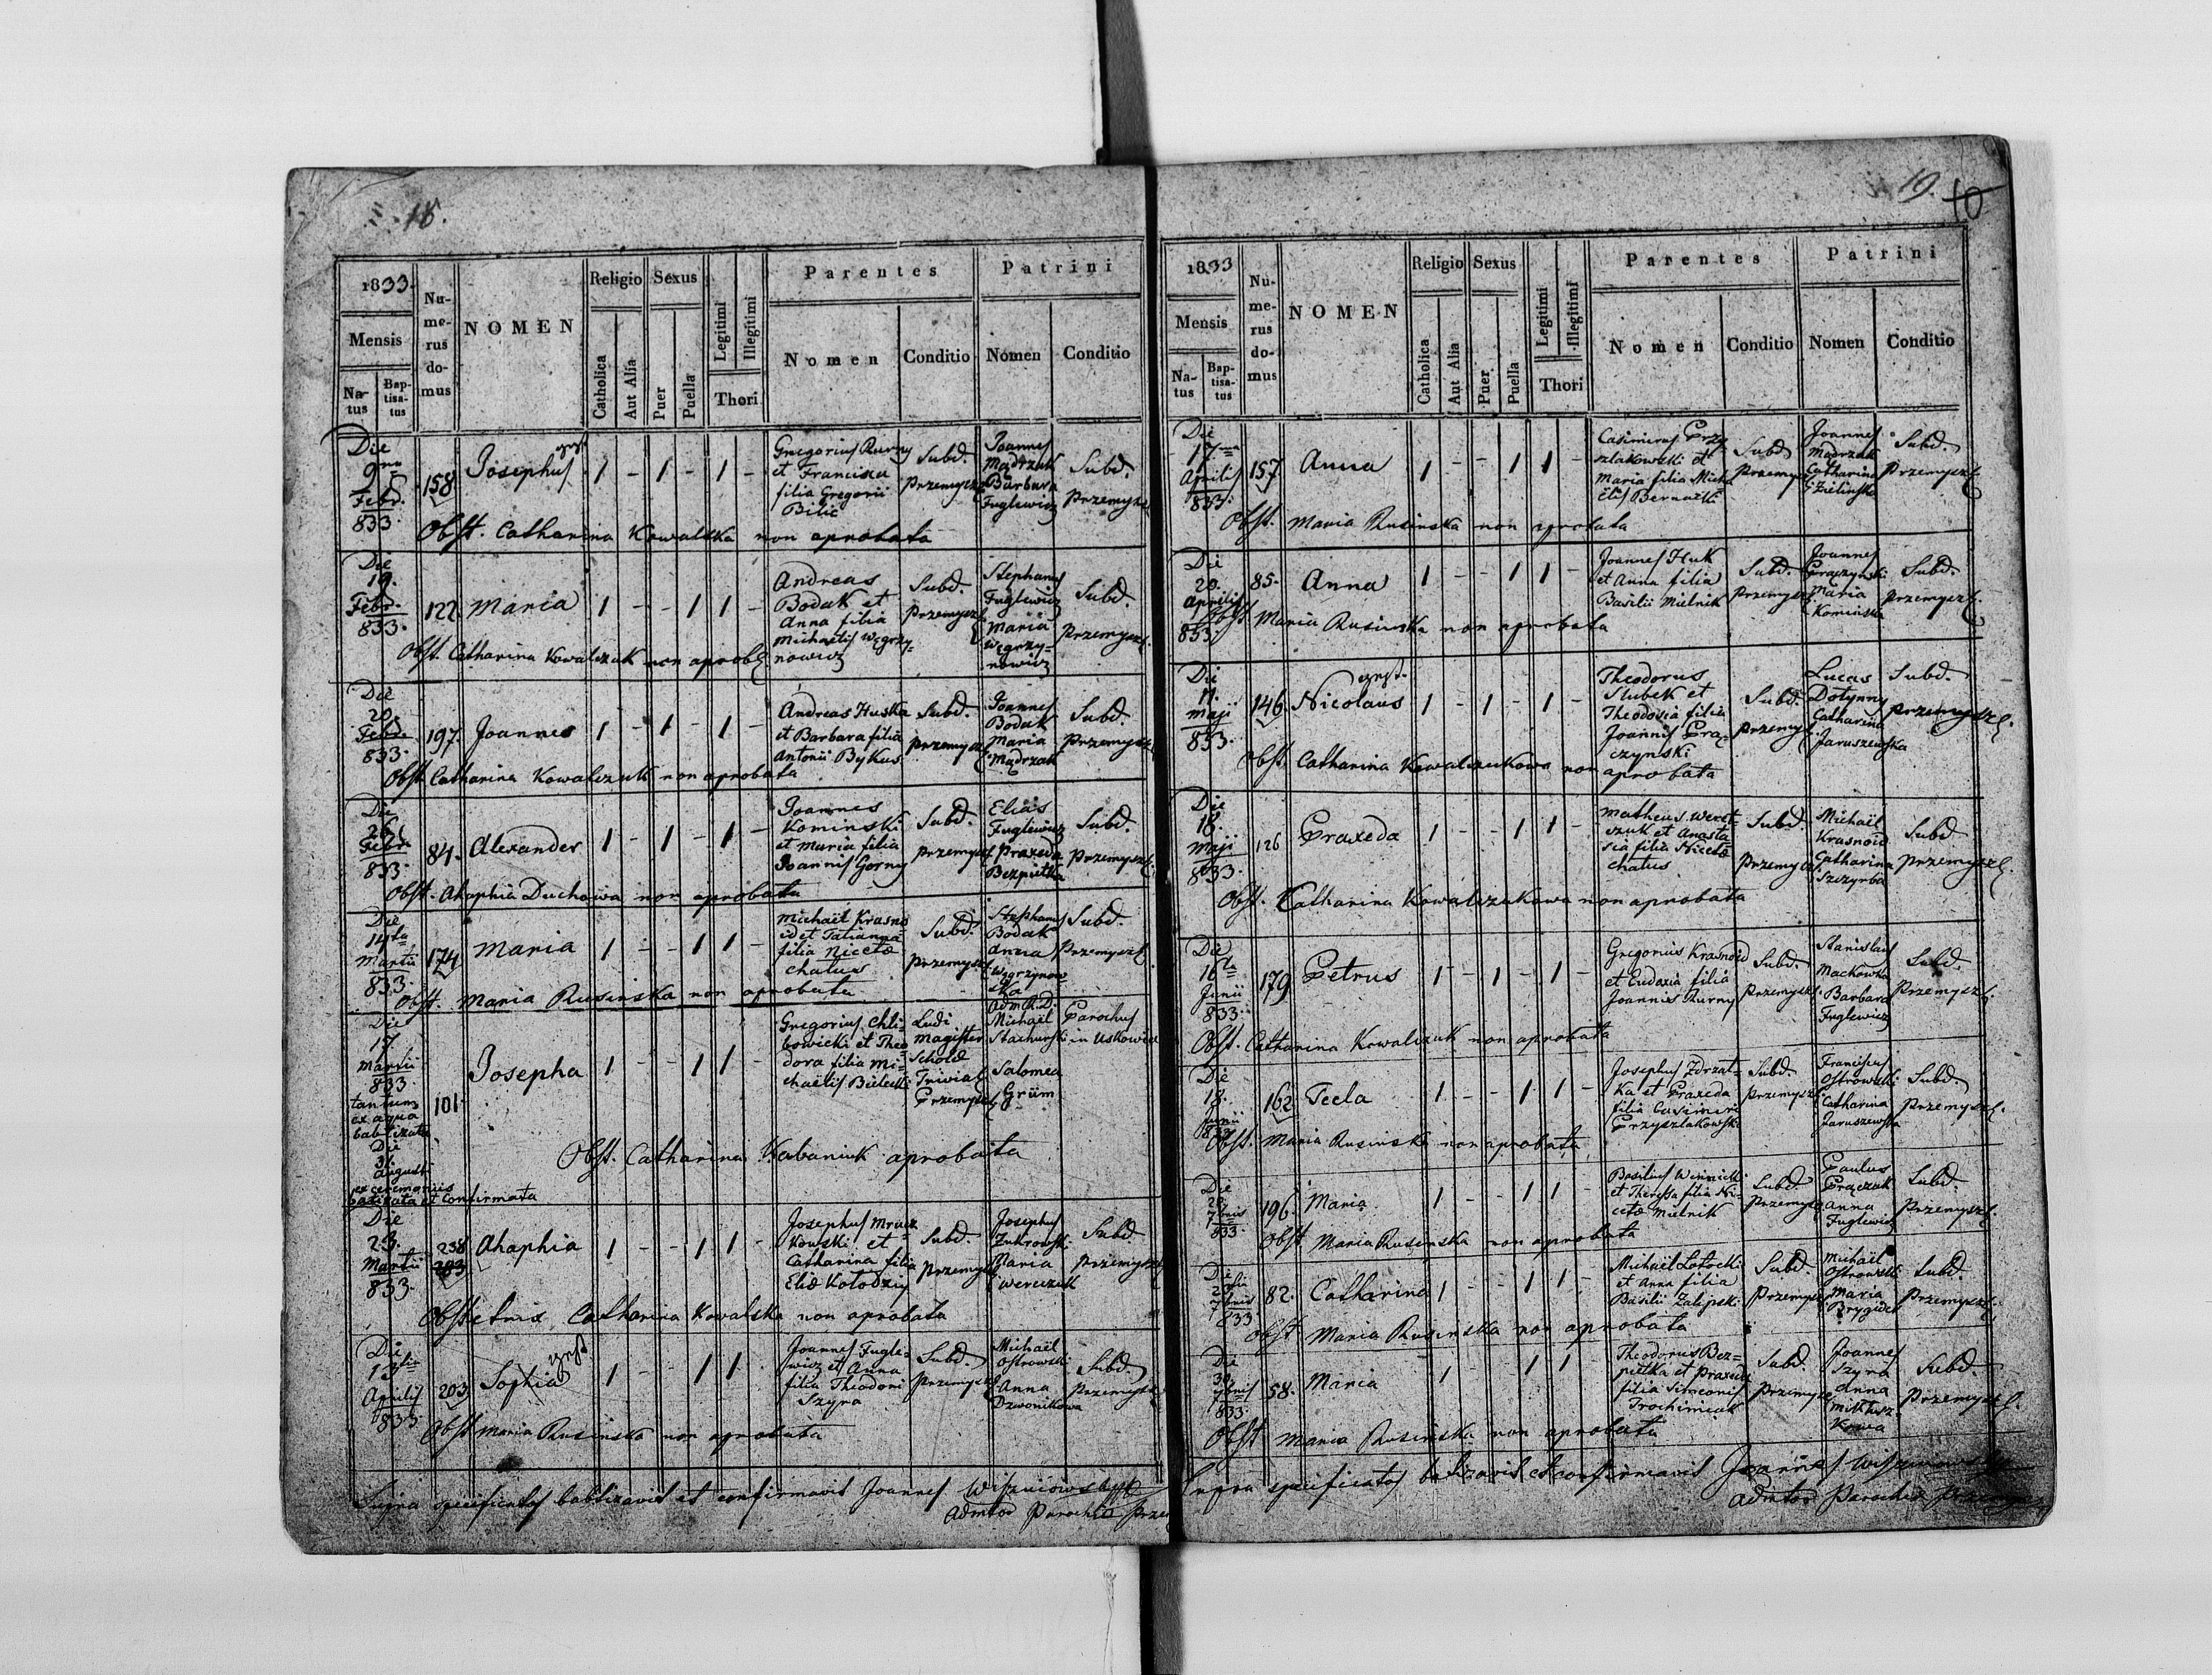 18.
1833.
Mensis
Na-
tus
Bap-
tisa-
tus
Nu-
me-
rus
do-
mus
NOMEN
Religio
Catholica
Aut Alia
Sexus
Puer
Puella
Legitimi
Illegitimi
Thori
Parentes
Nomen
Conditio
Patrini
Nomen
Conditio
Die
9na
Febr.
833.
158
Josephus
1 - 1 - 1 -
Gregorius Kurny
et Francisca
filia Gregorii
Bilic
Subd.
Przemysl.
Joannes
Mądrzak
Barbara
Fuglewicz
Subd.
Przemysl.
Obst. Catharina Kowalska non aprobata
Die
19.
Febr.
833.
122
Maria
1 - - 1 1 -
Andreas
Bodak et
Anna filia
Michaelis Węgrzy-
nowicz
Subd.
Przemysl.
Stephanus
Fuglewicz
Maria
Węgrzy-
nowicz
Subd.
Przemyszl.
Obst. Catharina Kowalczuk non aprob.
Die
20.
Febr.
833.
197.
Joannes
1 - 1 - 1 -
Andreas Huska
et Barbara filia
Antonii Bykus
Subd.
Przemysl.
Joannes
Bodak
Maria
Mądrzak
Subd.
Przemysl.
Obst. Catharina Kowalczuk non aprobata
Die
26
Febr.
833.
84.
Alexander
1 - 1 - 1 -
Joannes
Kominski
et Maria filia
Joannis Gorny
Subd.
Przemysl.
Elias
Fuglewicz
Praxeda
Bezpietka
Subd.
Przemyszl.
Obst. Ahaphia Duchowa non aprobata
Die
14ta
Martii
833.
174
Maria
1 - - 1 1 -
Michaël Krasno
id et Tatianna
filia Nicetæ
Chatus
Subd.
Przemysl.
Stephanus
Bodak
Anna
Węgrzynow
ska
Subd.
Przemyszl.
Obst. Maria Rusinska non aprobata
Die
17
Martii
833.
tantum
ex aqua
babtizata
Die
31.
Augusti
ex ceremoniis
batizata et confirmata
101.
Josepha
1 - - 1 1 -
Gregorius Chli-
bowicki et Theo
dora filia Mi-
chaëlis Bielecki
Ludi
Magister
Scholæ
Trivial.
Przemysl.
Adm. R.D.
Michaël
Stachurski
Salomea
Grüm
Parochus
in Uskowice
Obst. Catharina Kabaniuk aprobata
Die
23.
Martii
833.
238
203
Ahaphia
1 - - 1 1 -
Josephus Mrucz
kowski et
Catharina filia
Eliæ Kołodziy
Subd.
Przemysl.
Josephus
Zukrowski
Maria
Werczuk
Subd
Przemysl.
Obstetrix Catharina Kowalska non aprobata
Die
13tia
Aprilis
833.
203
Sophia
1 - - 1 1 -
Joannes Fugle-
wicz et Anna
filia Theodori
Szyra
Subd.
Przemysl.
Michaël
Ostrowski
Anna
Dzwonikowa
Subd.
Przemysl.
Obst Maria Rusinska non aprobata
Supra specificatos babtizavit et confirmavit Joannes
Admtor Parochiæ
19.
10
1833
Mensis
Na-
tus
Bap-
tisa-
tus
Nu-
me-
rus
do-
mus
NOMEN
Religio
Catholica
Aut Alia
Sexus
Puer
Puella
Legitimi
Illegitimi
Thori
Parentes
Nomen
Conditio
Patrini
Nomen
Conditio
Die
17ma
Aprilis
833.
157
Anna
1 - - 1 1 -
Casimirus Przy
szlakowski et
Maria filia Micha
ëlis Bernacki
Subd
Przemysl.
Joannes
Mądrzak
Catharina
Zielinska
Subd.
Przemyszl.
Obst. Maria Rusinska non aprobata
Die
20.
Aprilis
833.
85.
Anna
1 - - 1 1 -
Joannes Huk
et Anna filia
Basilii Mielnik
Subd.
Przemysl.
Joannes
Prączynski
Maria
Kominska
Subd.
Przemyszl.
Obst Maria Rusinska non aprobata
Die
11.
Maji
833.
146
Nicolaus
1 - 1 - 1 -
Theodorus
Slubek et
Theodosia filia
Joannis Prą-
czynski
Subd.
Przemysl.
Lucas
Dotynny
Catharina
Jaruszewska
Subd.
Przemyszl.
Obst. Catharina Kowalczukowa non aprobata
Die
18.
Maji
833.
126
Praxeda
1 - - 1 1 -
Matheus Werct-
szuk et Anasta
sia filia Nicetæ
Chatus
Subd.
Przemysl.
Michaël
Krasnoid
Catharina
Szczyrba
Subd
Przemyszl.
Obst. Catharina Kowalczukowa non aprobata
Die
16ta
Junii
833.
179
Petrus
1 - 1 - 1 -
Gregorius Krasnoid
et Eudoxia filia
Joannis Kurny
Subd.
Przemysl.
Stanislaus
Machowka
Barbara
Fuglewicz
Subd.
Przemyszl.
Obst. Catharina Kowalczuk non aprobata
Die
18.
Junii
833
162
Tecla
1 - - 1 1 -
Josephus Zdrzat-
ka et Praxeda
filia Casimiri
Przyszlakowski
Subd.
Przemysl.
Franciscus
Ostrowski
Catharina
Jaruszewska
Subd.
Przemyszl.
Obst. Maria Rusinska non aprobata
Die
7bris
833.
196.
Maria
1 - - 1 1 -
Basilius Winnicki
et Theressa filia Ni-
cetæ Mielnik
Subd
Przemysl.
Paulus
Prączak
Anna
Fuglewicz
Subd.
Przemyszl.
Obst Maria Rusinska non aprobata
Die
7bris
833
82.
Catharina
1 - - 1 1 -
Michaël Łotocki
et Anna filia
Basilii Zalipski
Subd
Przemysl.
Michaël
Ostrowski
Maria
Brygider
Subd.
Przemyszl.
Obst Maria Rusinska non aprobata
Die
30.
7bris
833.
58.
Maria
1 - - 1 1 -
Theodorus Bez-
pietka et Praxeda
filia Simeonis
Trochimiak
Subd.
Przemysl.
Joannes
Szyra
Anna
Subd.
Przemyszl.
Obst Maria Rusinska non aprobata
Supra specificatos babtizavit et confirmavit Joannes
Admtor Parochiæ